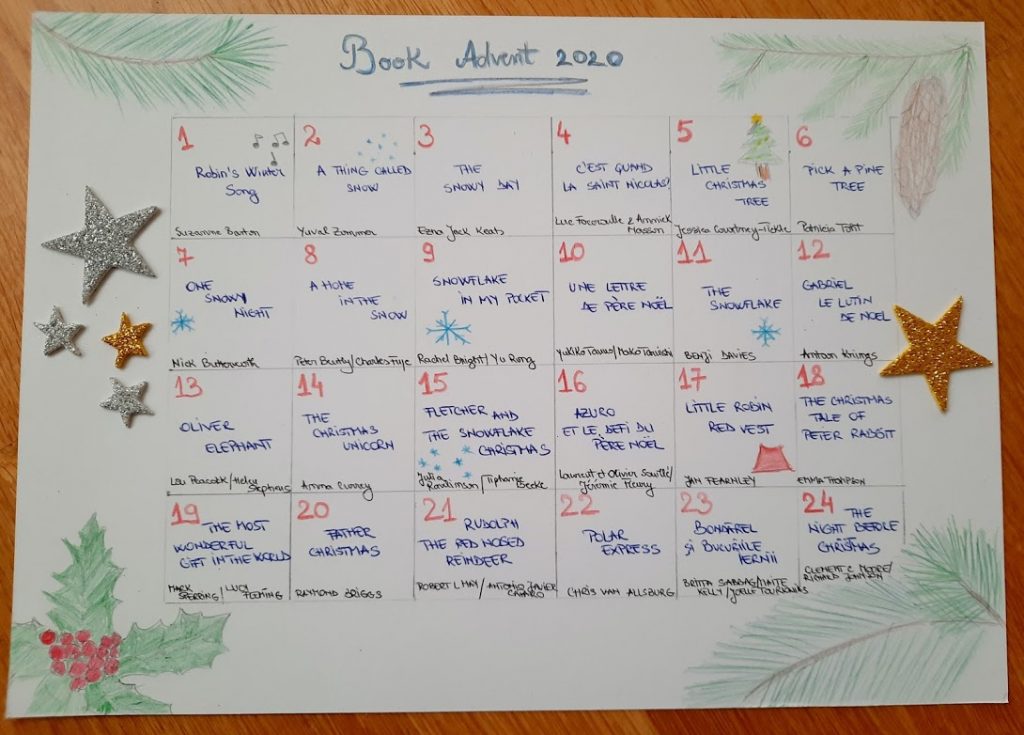 Book Advent 2020
1
Robin's Winter
Song
Suzanne Barton
2
A THING CALLED
SNOW
Yuval Zommer
3
THE
SNOWY DAY
Ezra Jack Keats
4
C'EST QUAND
LA SAINT NICOLAS?
Luc Foccroulle & Annick
Masson
5
LITTLE
CHRISTMAS
TREE
Jessica Courtney-Tickle
6
PICK A PINE
TREE
Patricia Toht
7
ONE
SNOWY
NIGHT
Nick Butterworth
8
A HOME
IN THE
SNOW
Peter Bently/Charles Fuge
9
SNOWFLAKE
IN MY POCKET
Rachel Bright/Yu Rong
10
UNE LETTRE
DE PÈRE NOËL
Yukiko
11
THE
SNOWFLAKE
BENJI DAVIES
12
GABRIEL
LE LUTIN
DE NOEL
Antoon Krings
13
OLIVER
ELEPHANT
Lou Peacock/Helen
Stephens
14
THE
CHRISTMAS
UNICORN
Anna Currey
15
FLETCHER AND
THE SNOWFLAKE
CHRISTMAS
Julia
Rawlinson/Tiphanie
Beeke
16
AZURO
ET LE DEFI DU
PÈRE NOËL
Laurent et Olivier Souillé/
Jérémie Fleury
17
LITTLE ROBIN
RED VEST
JAN FEARNLEY
18
THE CHRISTMAS
TALE OF
PETER RABBIT
EMMA THOMPSON
19
THE MOST
WONDERFUL
GIFT IN THE WORLD
MARK
SPERRING/LUCY
FLEMING
20
FATHER
CHRISTMAS
RAYMOND BRIGGS
21
RUDOLPH
THE RED NOSED
REINDEER
ROBERT L MAY/ANTONIO JAVIER
CAPARO
22
POLAR
EXPRESS
CHRIS VAN ALLSBURG
23
BONDAREL
ȘI BUCURIILE
IERNII
BRITTA SABBAG/MAITE
KELLY/JOELLE TOURLONIAS
24
THE
NIGHT BEFORE
CHRISTMAS
CLEMENT C MOORE/
RICHARD JOHNSON